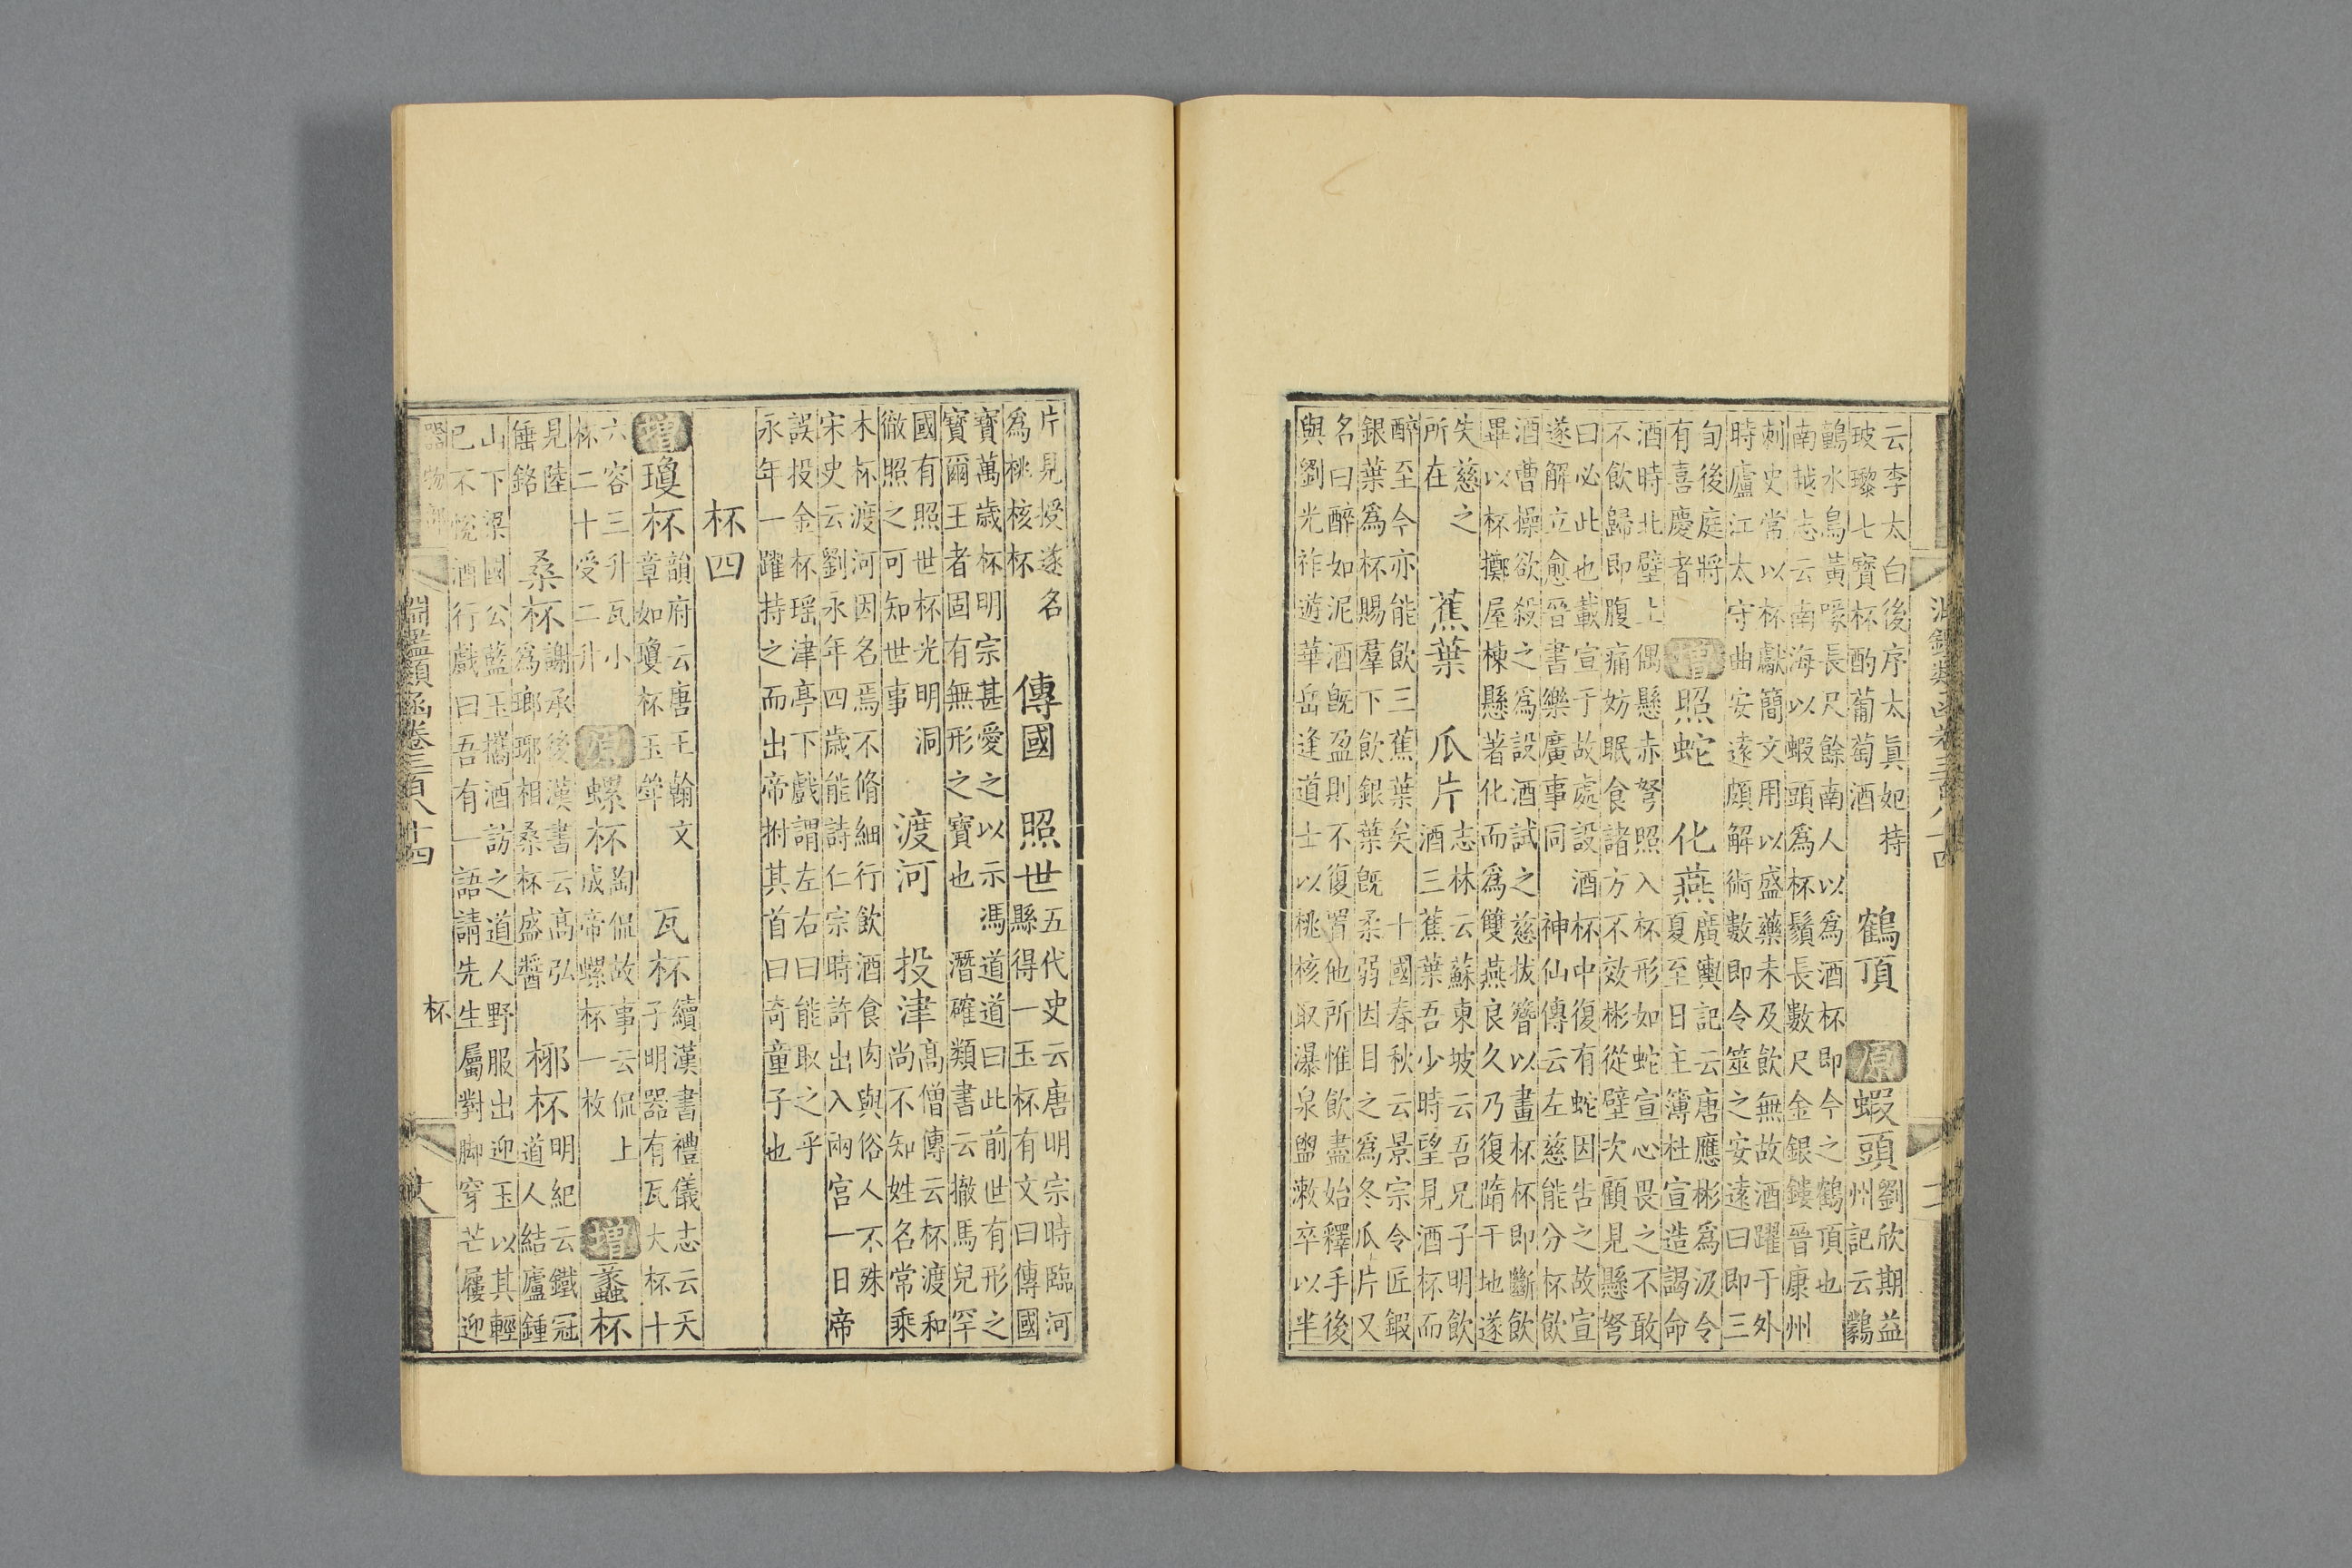 云李太白後序太真妃持
玻瓈七寶杯酌葡萄酒
鶴頂
原
蝦頭
劉欣期益
州記云鸐
鸐水鳥黃喙長尺餘南人以爲酒杯即今之鶴頂也
南越志云南海以蝦頭爲杯鬚長數尺金銀鏤晉康州
刺史常以杯獻簡文用以盛藥未及飲無故酒躍于外
時廬江太守曲安遠頗解術數即令筮之安遠曰即三
旬後庭將
有喜慶者
增
照蛇
化燕
廣輿記云唐應彬爲汲令
夏至日主簿杜宣造謁命
酒時北壁上偶懸赤弩照入杯形如蛇宣心畏之不敢
不飲歸即腹痛妨眠食諸方不效彬從壁次顧見懸弩
曰必此也載宣于故處設酒杯中復有蛇因告之故宣
遂解立愈晉書樂廣事同 神仙傳云左慈能分杯飲
酒曹操欲殺之爲設酒試之慈拔簪以畫杯杯即斷飲
畢以杯擲屋棟懸著化而爲雙燕良久乃復墮于地遂
失慈之
所在
蕉葉
瓜片
志林云蘇東坡云吾兄子明飲
酒三蕉葉吾少時望見酒杯而
醉至今亦能飲三蕉葉矣 十國春秋云景宗令匠鍜
銀葉爲杯賜羣下飲銀葉旣柔弱因目之爲冬瓜片又
名曰醉如泥酒旣盈則不復置他所惟飲盡始釋手後
與劉光祚遊華岳逢道士以桃核取瀑泉盥漱卒以半
片見授遂名
爲桃核杯
傳國
照世
五代史云唐明宗時臨河
縣得一玉杯有文曰傳國
寶萬歲杯明宗甚愛之以示馮道道曰此前世有形之
寶爾王者固有無形之寶也 潛確類書云撒馬兒罕
國有照世杯光明洞
徹照之可知世事
渡河
投津
高僧傳云杯渡和
尚不知姓名常乘
木杯渡河因名焉不脩細行飲酒食肉與俗人不殊
宋史云劉永年四歲能詩仁宗時許出入兩宮一日帝
誤投金杯瑶津亭下戲謂左右曰能取之乎
永年一躍持之而出帝拊其首曰奇童子也
杯四
增
瓊杯
韻府云唐王翰文
章如瓊杯玉斝
瓦杯
續漢書禮儀志云天
子明器有瓦大杯十
六容三升瓦小
杯二十受二升
原
螺杯
陶侃故事云侃上
成帝螺杯一枚
增
蠡杯
見陸
倕銘
桑杯
謝承後漢書云高弘
爲瑯琊相桑杯盛醬
椰杯
明紀云鐵冠
道人結廬鍾
山下梁國公藍玉攜酒訪之道人野服出迎玉以其輕
己不悅酒行戲曰吾有一語請先生屬對脚穿芒屨迎
器物部
淵鑑類函卷三百八十四
杯